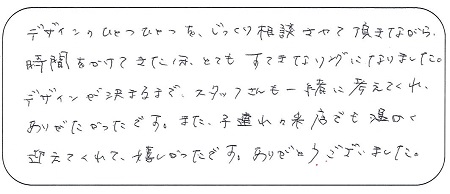 デザインのひとつひとつを、じっくり相談させて頂きながら、
時間をかけてきた分、とても すてきなリングになりました。
デザインが決まるまで、スタッフさんも一緒に考えてくれ、
ありがたかったです。また、子連れの来店でも温かく
迎えてくれて、嬉しかったです。ありがとうございました。